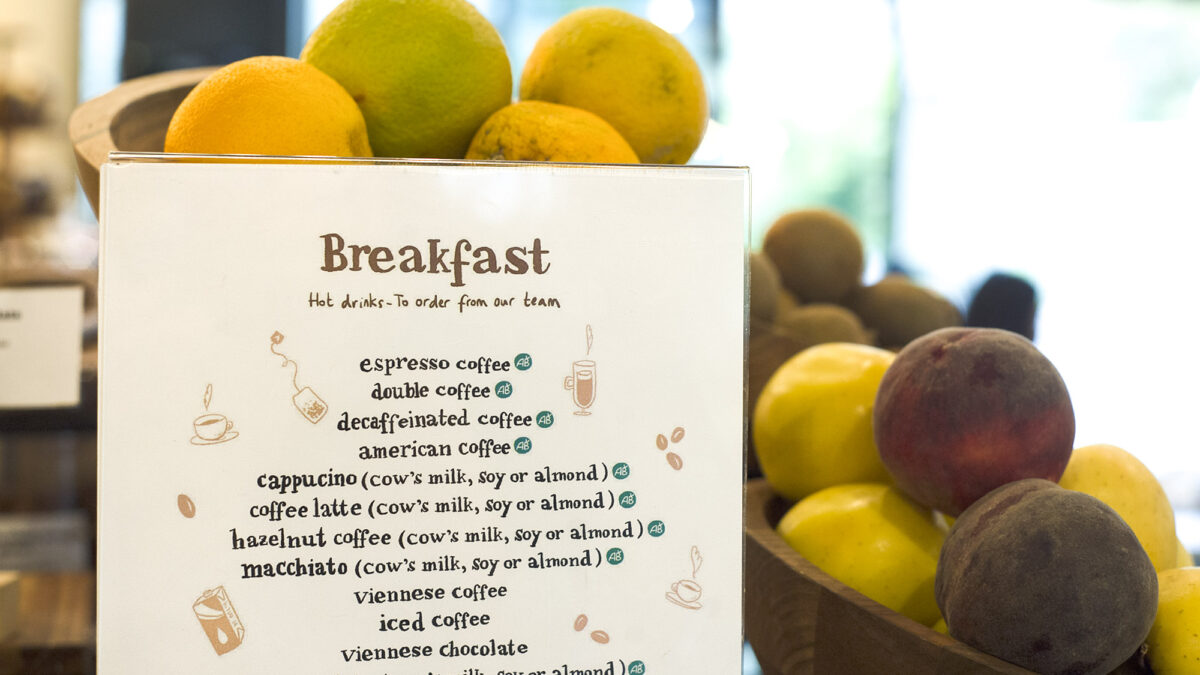 Breakfast
Hot drinks-To order from our team
espresso coffee AB
double coffee AB
decaffeinated coffee AB
american coffee AB
cappucino (cow's milk, soy or almond) AB
coffee latte (cow's milk, soy or almond) AB
hazelnut coffee (cow's milk, soy or almond) AB
macchiato (cow's milk, soy or almond) AB
viennese coffee
iced coffee
viennese chocolate
milk, soy or almond) AB